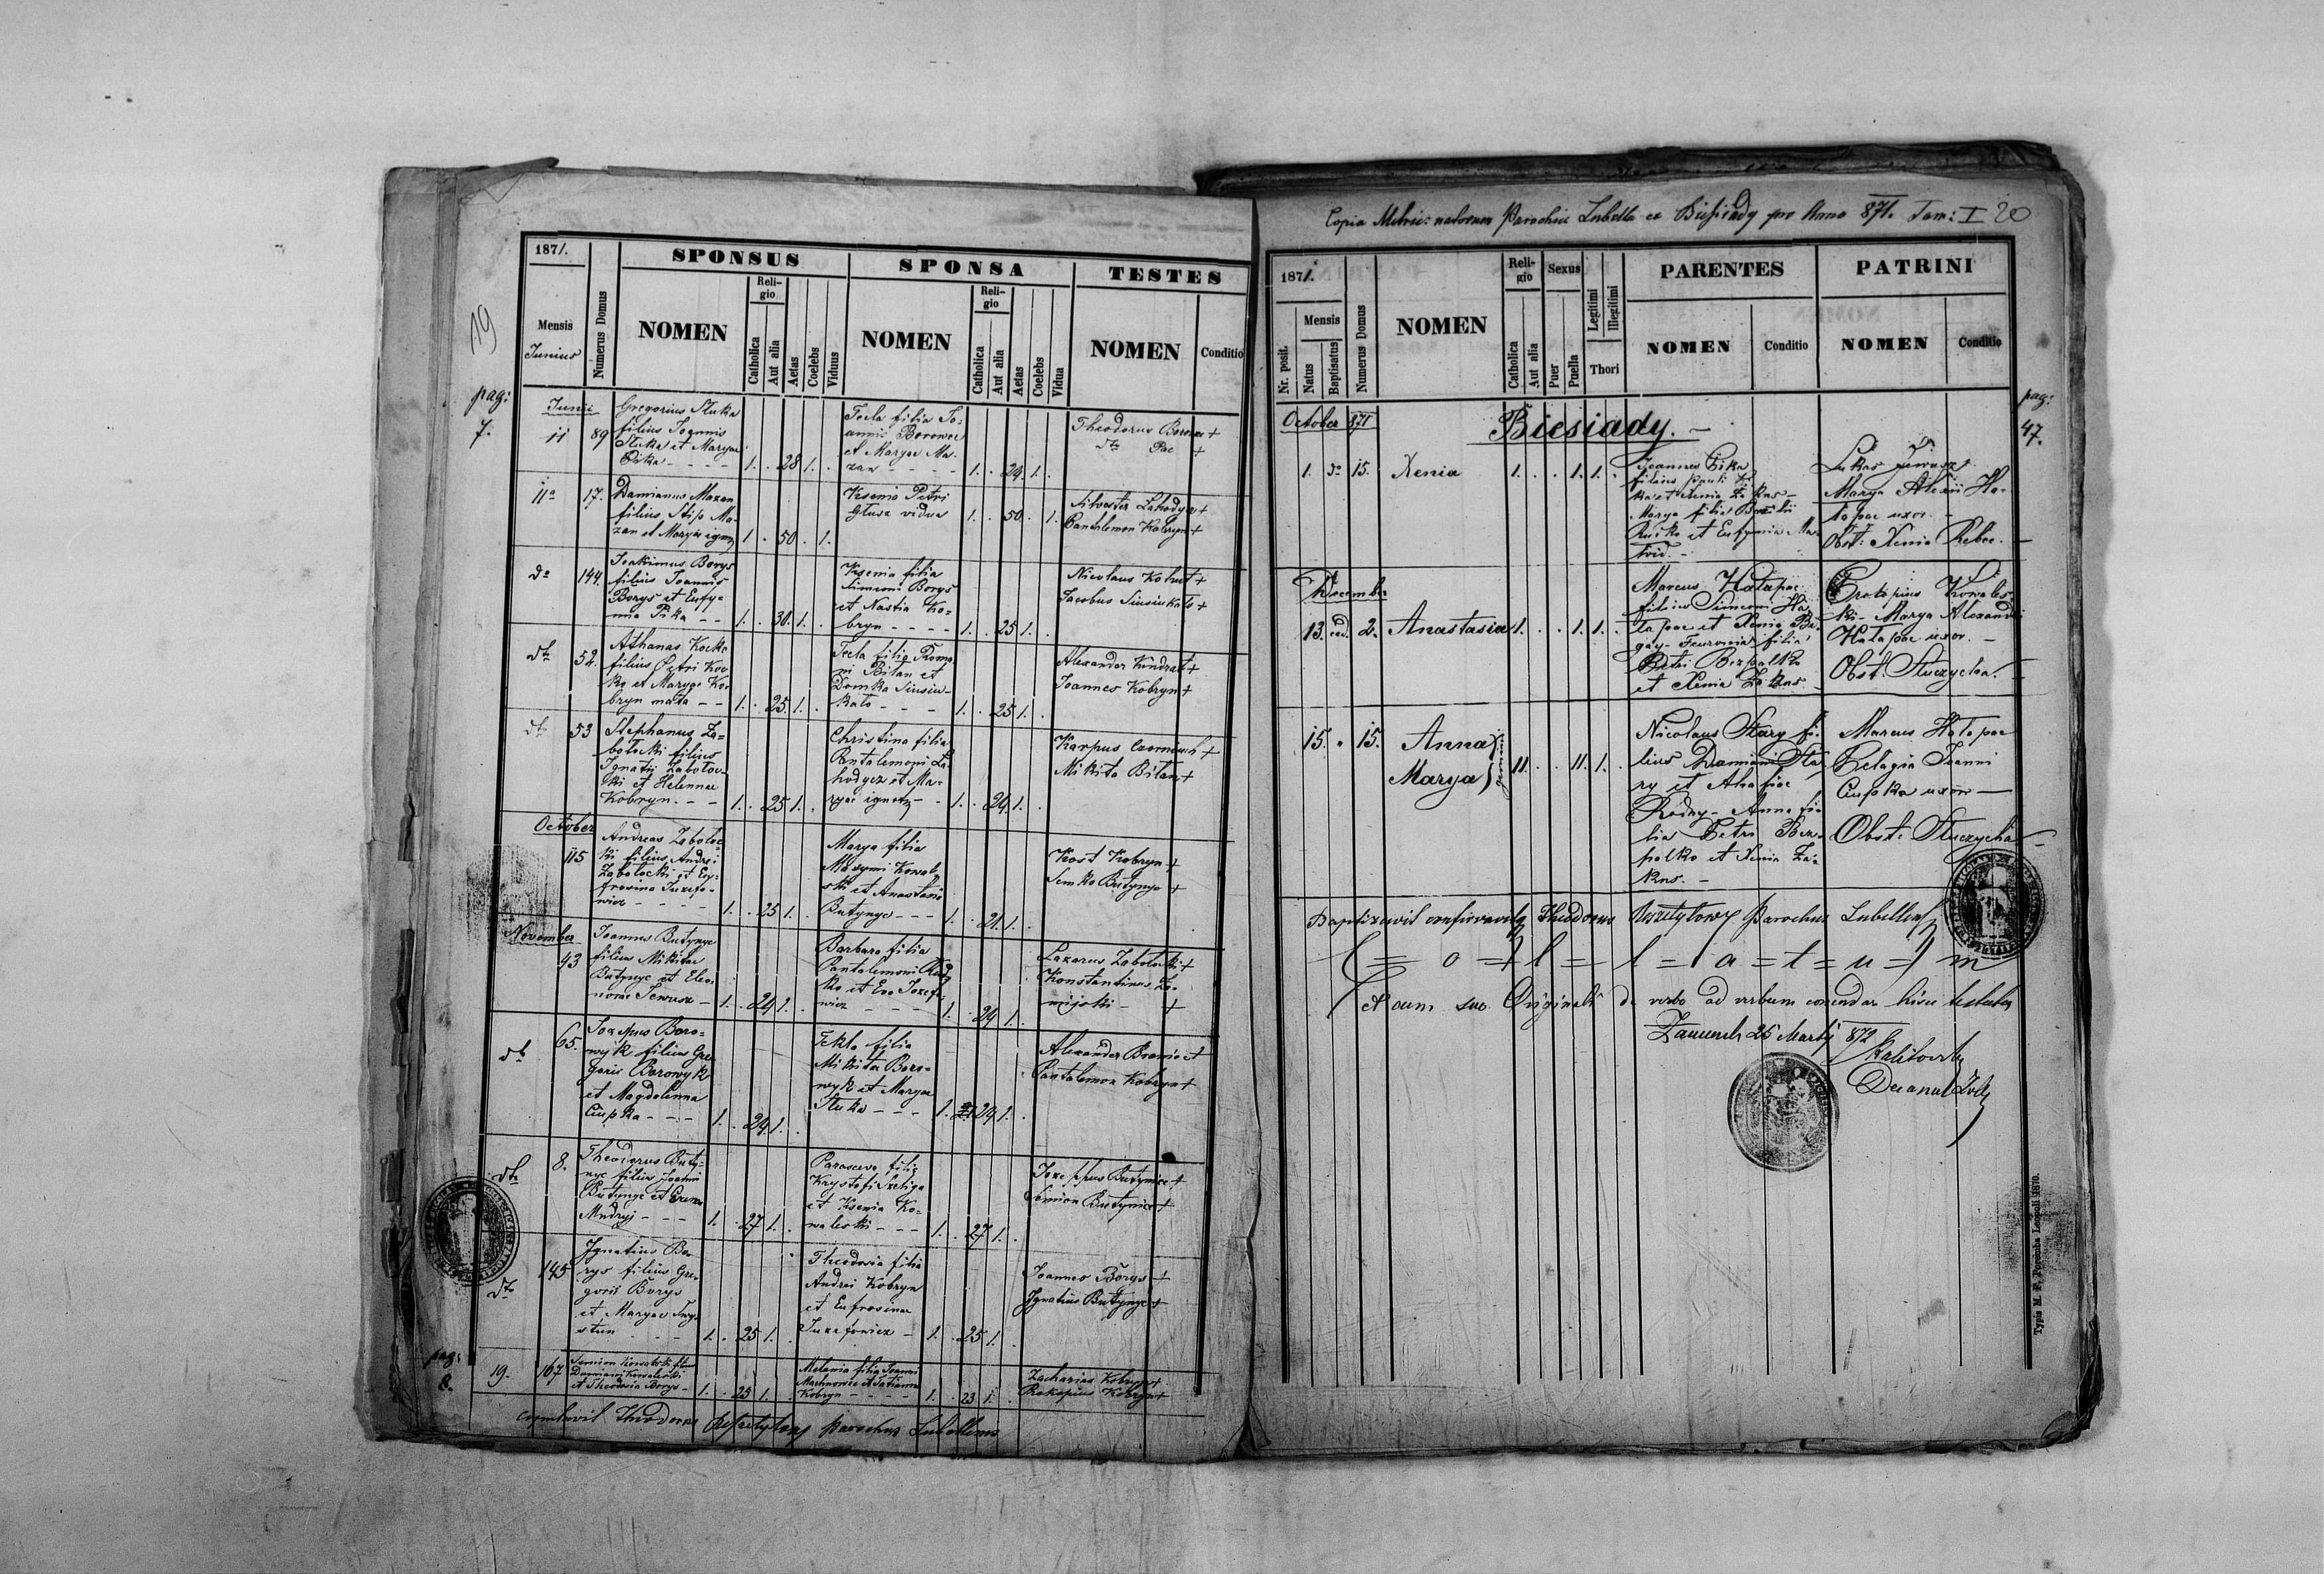 19
pag:
7.
1871.
Mensis
Junius
Numerus Domus
SPONSUS
NOMEN
Reli-
gio
Catholica
Aut alia
Aetas
Coelebs
Viduus
SPONSA
NOMEN
Reli-
gio
Catholica
Aut alia
Aetas
Coelebs
Vidua
TESTES
NOMEN
Conditio
Junii
11 89
Gregorius Stuka
filius Joannis
Stuka et Maryae
Pika - - - -
1. . 28 1. .
Tecla filia Jo-
annis Borowec
et Maryae Ma-
zan - - - -
1. . 24. 1. .
Theodorus Borowec +
dto Pac +
11a 17.
Damianus Mazan
filius Stip Ma-
zan et Maryae ignoz
1 . 50 . 1.
Ksenia Petri
Glusz vidua
1. . 50. . 1.
Silvester Lahodycz +
Pantalemon Kobryn +
do 144.
Joakimus Borys
filius Joannis
Borys et Eufy-
mia Pika - -
1. . 30. 1. .
Ksenia filia
Simeoni Borys
et Nastia Ko-
bryn - - - -
1. . 25 1. .
Nicolaus Kohut +
Jacobus Siusiukalo +
dto 52.
Athanas Kocko
filius Petri Koc
ko et Maryae Ko-
bryn nata - -
1. . 25. 1. .
Tecla filia Roma
ni Bilan et
Domka Siusiu-
kalo - - -
1. . 25 1. .
Alexander Kondrat +
Joannes Kobryn +
dto 53
Stephanus Za-
bolocki filius
Ignatii Zaboloc-
ki et Helennae
Kobryn. - -
1. . 25 1. .
Christina filia
Pantalemoni La-
hodycz et Ma-
ryae ignoz - -
1. . 24. 1. .
Karpus Czorniuch +
Mikita Bilan +
October
115
Andreas Zaboloc-
ki filius Andrei
Zabolocki et Eu-
frosina Juzefo-
wicz - - - -
1. . 25 1. .
Marya filia
Maxymi Kowal-
ski et Anastasia
Butynyc - - -
1. . 21. 1. .
Kost Kobryn +
Semko Butynyc +
November
93
Joannes Butynyc
filius Mikitae
Butynyc et Eleo-
norae Jewusz -
1. . 24 1. .
Barbara filia
Pantalemoni
ko et Eva Jozefo-
wicz - - -
1. . 24 1. .
Lazarus Zabolocki +
Konstantinus Za-
mijski - +
dto 65.
Josephus Boro-
wyk filius Gre
goris Borowyk
et Magdalenna
Ciupka - - -
1. . 24. 1. .
Tekla filia
Mikita Boro-
wyk et Maryae
Stuka - - -
1. 24 1. .
Alexander
Pantalemon Kobryn +
dto 8.
Theodorus Buty-
nyc filius Joanni
Butynyc et
Mudryj - - -
1. . 27 1. .
Parasceva filia
Krystofi Szeliga
et Ksenia Ko-
waleski - - -
1. . 27 1. .
Jozeppus Butynice +
Semion Butynice +
dto 145
Ignatius Bo-
rys filius Gre-
gorii Borys
et Maryae
1. . 25 1. .
Theodosia filia
Andrei Kobryn
et Eufrosinae
Juzefowicz -
1. . 25 1. .
Joannes Borys +
Ignatius Butynyc +
pag:
8.
19. 167
Semion Kowalski filius
Damiani Kowaleski
et Theodosia Borys -
1. . 25 1. .
Melania filia Joanni
Machnowec et Tatianna
Kobryn - - - -
1. . 23 1. .
Zacharias Kobryn +
Prokopius Kobryn +
Theodorus parochus Lubellens
Copia Metric: natorum Parochiae Lubella ex Biesiady pro Anno 871. Tom: I 20
1871.
Nr. posit.
Mensis
Natus
Baptisatus
Numerus Domus
NOMEN
Reli-
gio
Catholica
Aut alia
Sexus
Puer
Puella
Legitimi
Illegitimi
Thori
PARENTES
NOMEN
Conditio
PATRINI
NOMEN
Conditio
pag:
47.
October 871
Biesiady. -
1. do 15. Xenia
1. . . 1. 1. .
Joannes Pika
filius Pauli Pi
ka et Xenia Zakas -
Marya filia Basilii
Rusko et Eufymia Ma-
Lukas Jewusz
Marya Alexii Ha-
tapac uxor. -
Obst: Xenia Rebec. -
December
13. ead. 2. Anastasia
1. . . 1. 1. .
Marcus Hatapac
filius Simeoni Ha-
tapac et Xenia Bi-
gay - Feuronia filia
Petri Bezpalko
et Xenia Zakas -
Protopius Kowales-
ki - Marya Alexandri
Hatapac uxor. -
Obst: Stuczycha. -
15. " 15. Anna
Marya } gemini
11. . . 11. 1. .
Nicolaus Stary fi-
lius Damiani Sta-
ry et Ahafiae
Rodny - Anna fi-
lia Petri Bez-
palko et Xenia Za-
kas. -
Marcus Hatapac
Pelagia Joanni
Ciupka uxor -
Obst: Stuczycha -
Baptizavit confirmavitq Theodorus parochus Lubellensis
( = o = l = l = a = t = u = ) m
et cum suo Originali de verbo ad verbum concordare hisce testatur
25 Martij 872
Decanus
Typis M. F. Poremba Leopoli 1870.